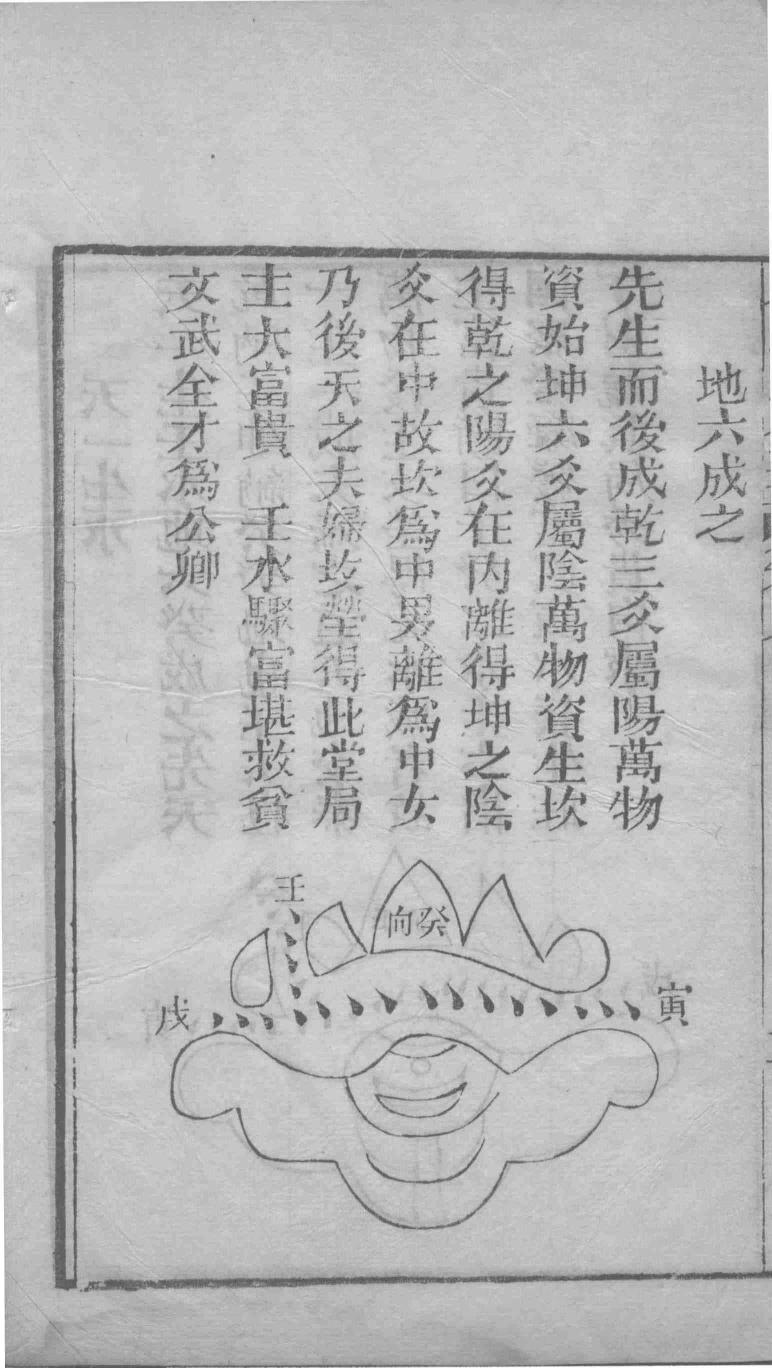 地六成之
先生而後成乾三爻屬陽萬物
資始坤六爻屬陰萬物資生坎
得乾之陽爻在內離得坤之陰
爻在中故坎爲中男離爲中女
乃後天之夫婦坟塋得此堂局
主大富貴 壬水驟富堪救貧
文武全才爲公卿
壬
癸向
寅
戌